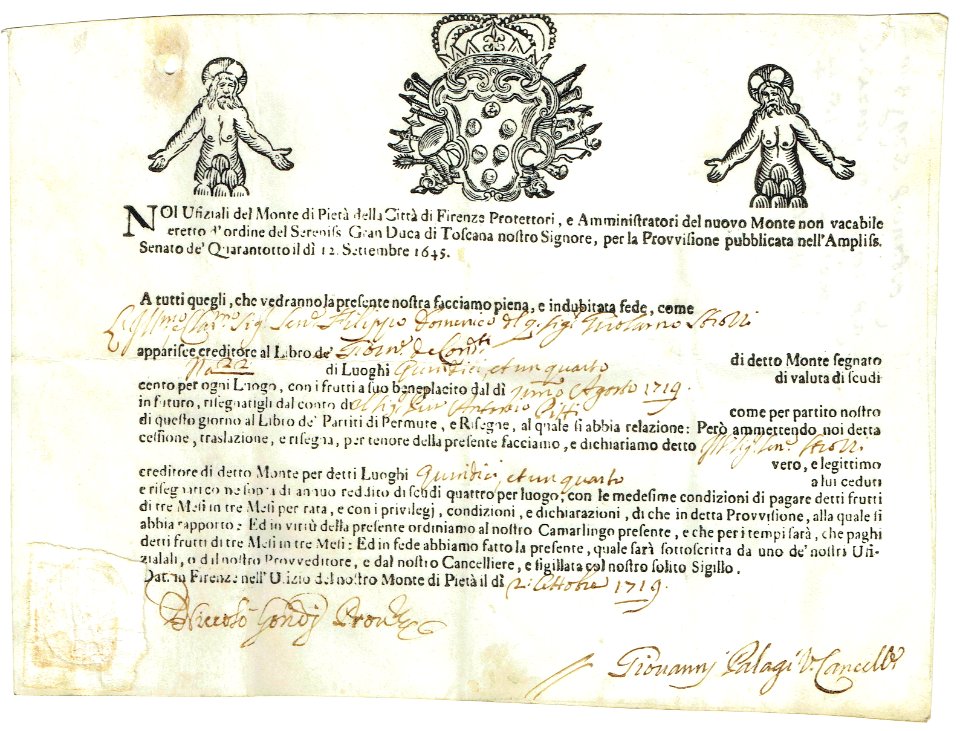 NOI Ufiziali del Monte di Pietà della Città di Firenze Protettori, e Amministratori del nuovo Monte non vacabile
eretto d'ordine del Sereniss. Gran Duca di Toscana nostro Signore, per la Provvisione pubblicata nell'Ampliss.
Senato de' Quarantotto il dì 12. Settembre 1645.
A tutti quegli, che vedranno la presente nostra facciamo piena, e indubitata fede, come
Sig. Sen. Filippo Domenico del q. Sig. Girolamo Strozzi
apparisce creditore al Libro de'
No. 22 di Luoghi Quindici, et un quarto di detto Monte segnato
di valuta di scudi
cento per ogni Luogo, con i frutti a suo beneplacito dal dì primo Agosto 1719.
in futuro, risegnatigli dal conto di Antonio
come per partito nostro
di questo giorno al Libro de' Partiti di Permute, e Risegne, al quale si abbia relazione: Però ammettendo noi detta
cessione, traslazione, e risegna, per tenore della presente facciamo, e dichiariamo detto Sig. Sen. Strozzi
vero, e legittimo
creditore di detto Monte per detti Luoghi Quindici, et un quarto a lui ceduti
e risegnati come sopra di annuo reddito di scudi quattro per luogo; con le medesime condizioni di pagare detti frutti
di tre Mesi in tre Mesi per rata, e con i privilegj, condizioni, e dichiarazioni, di che in detta Provvisione, alla quale si
abbia rapporto: Ed in virtù della presente ordiniamo al nostro Camarlingo presente, e che per i tempi sarà, che paghi
detti frutti di tre Mesi in tre Mesi: Ed in fede abbiamo fatto la presente, quale sarà sottoscritta da uno de' nostri Ufi-
zialali, o dal nostro Provveditore, e dal nostro Cancelliere, e sigillata col nostro solito Sigillo.
Dat. in Firenze nell'Ufizio del nostro Monte di Pietà il dì 2. Ottobre 1719.
Niccolò Gondj Prov.re
Giovannj Palagi V. Cancell.e